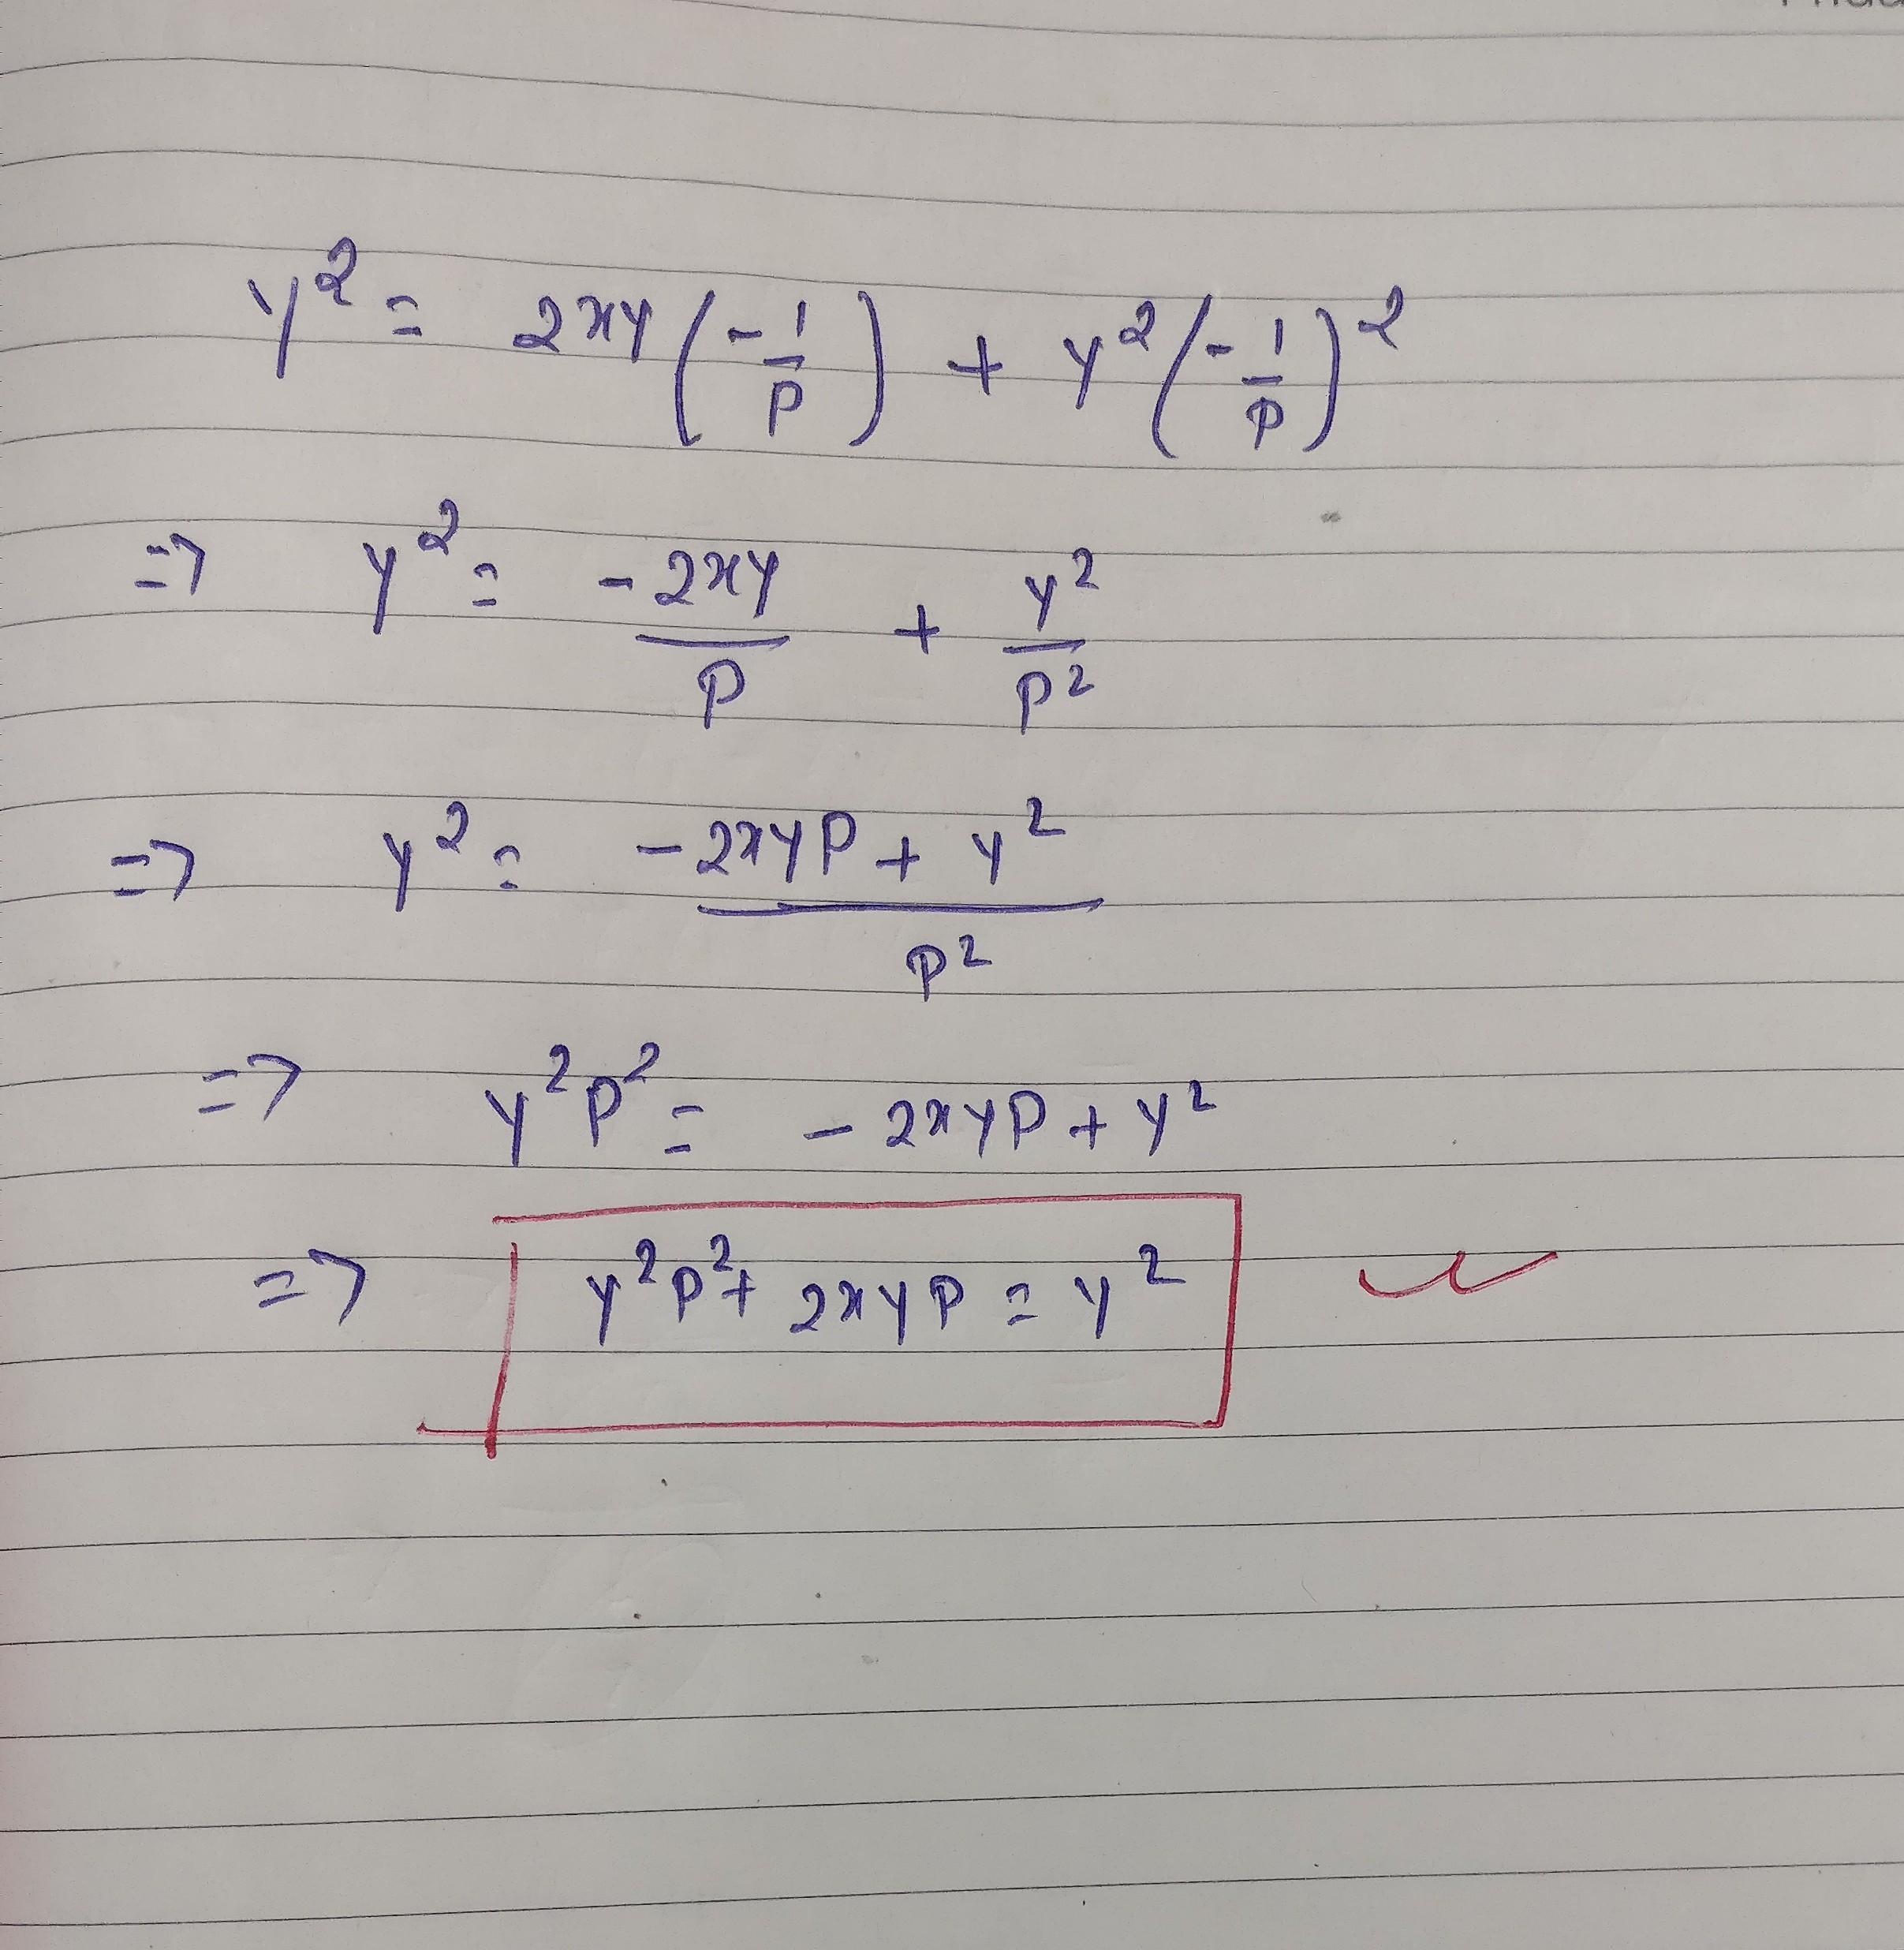 y² = 2xy (-1/p) + y² (-1/p)²
=> y² = -2xy/p + y²/p²
=> y² = (-2xyp + y²)/p²
=> y²p² = -2xyp + y²
=> y²p² + 2xyp = y²